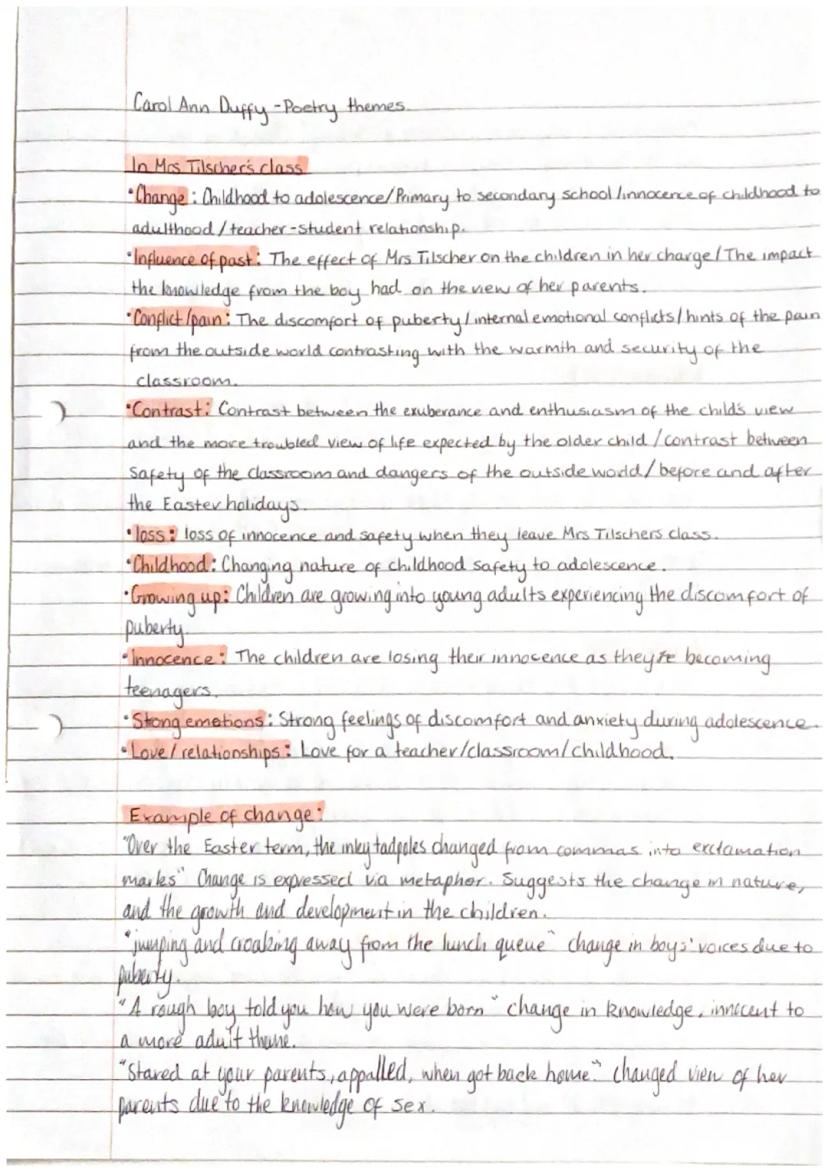 Carol Ann Duffy - Poetry themes.
In Mrs Tilscher's class
•Change: Childhood to adolescence/Primary to secondary school/innocence of childhood to
adulthood/teacher-student relationship.
•Influence of past: The effect of Mrs Tilscher on the children in her charge/The impact
the knowledge from the boy had on the view of her parents.
•Conflict/pain: The discomfort of puberty/internal emotional conflicts/hints of the pain
from the outside world contrasting with the warmth and security of the
classroom.
•Contrast: Contrast between the exuberance and enthusiasm of the child's view
and the more troubled view of life expected by the older child/contrast between
safety of the classroom and dangers of the outside world/before and after
the Easter holidays.
•loss: loss of innocence and safety when they leave Mrs Tilschers class.
•Childhood: Changing nature of childhood safety to adolescence.
•Growing up: Children are growing into young adults experiencing the discomfort of
puberty.
•Innocence: The children are losing their innocence as they're becoming
teenagers.
•Stong emotions: Strong feelings of discomfort and anxiety during adolescence.
•Love/relationships: Love for a teacher/classroom/childhood.
Example of change:
"Over the Easter term, the inky tadpoles changed from commas into exclamation
marks" Change is expressed via metaphor. Suggests the change in nature,
and the growth and development in the children.
"jumping and croaking away from the lunch queue" change in boys' voices due to
puberty.
"A rough boy told you how you were born" change in knowledge, innocent to
a more adult theme.
"Stared at your parents, appalled, when got back home." changed view of her
parents due to the knowledge of sex.